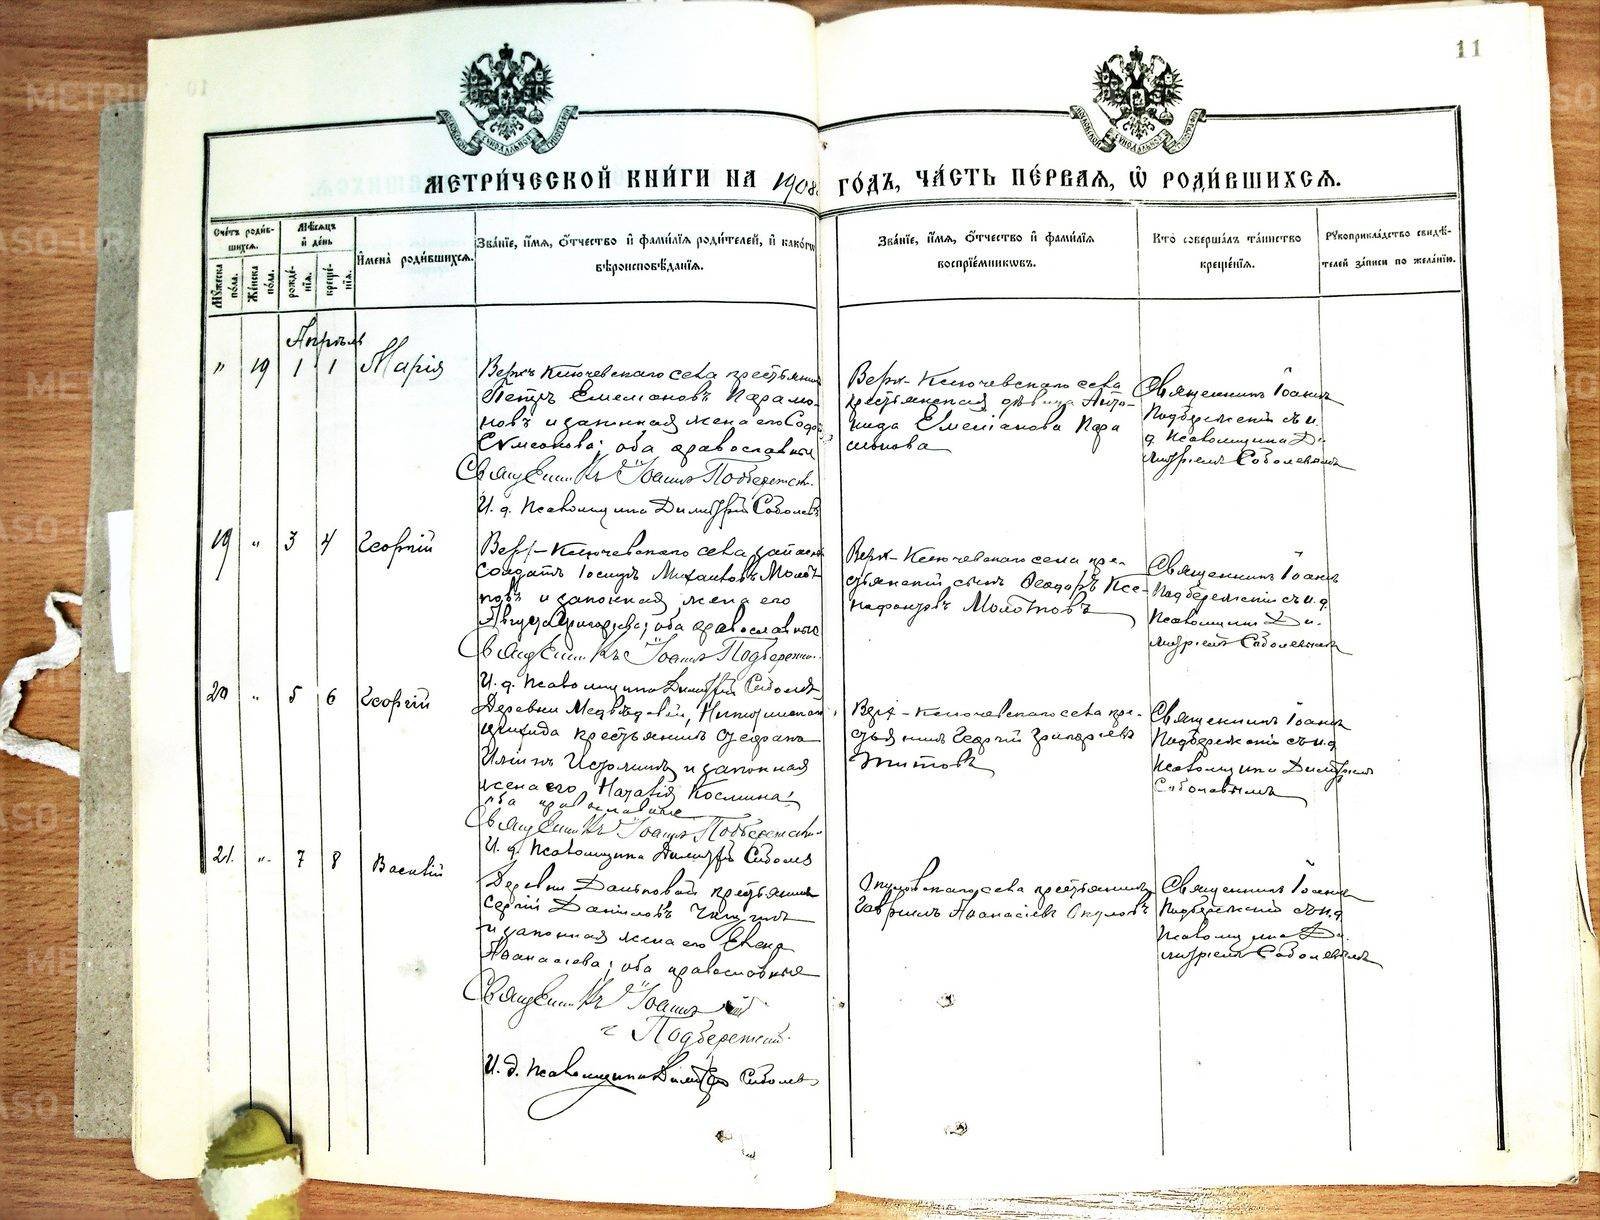 11
МЕТРИ́ЧЕСКОЙ КНИ́ГИ НА 1908 ГО́ДЪ, ЧА́СТЬ ПЕ́РВАЯ, Ѡ РОДИ́ВШИХСЯ.
Счетъ родившихся.
Мужеска пола.
Женска пола.
Мѣсяцъ и день
рожденія.
крещенія.
Имена родившихся.
Званіе, имя, отчество и фамилія родителей, и какогѡ вѣроисповѣданія.
Званіе, имя, отчество и фамилія воспріемникѡвъ.
Кто совершалъ таинство крещенія.
Рукоприкладство свидѣтелей записи по желанію.
Апрѣль
" 19 1 1 Марія
Верхъ-Ключевскаго села крестьянинъ
Петръ Емеліановъ Парамо-
новъ и законная жена его
Сумеонова; оба православные
Священникъ Іоаннъ Подбережскій
И. д. Псаломщика Димитрій Соболевъ
Верх-Ключевскаго села
крестьянская дѣвица Анто-
нида Емеліанова Пара
монова
Священникъ Іоаннъ
Подбережскій съ и.
д. Псаломщика Ди-
митріемъ Соболевымъ
19 " 3 4 Георгій
Верх-Ключевскаго села запасный
солдатъ Іосифъ Михаиловъ Молот
ковъ и законная жена его
Августа Григорьева; оба православные
Священникъ Іоаннъ Подбережскій
И. д. Псаломщика Димитрій Соболевъ
Верх-Ключевскаго села кре-
стьянскій сынъ Ѳеодоръ Ксе-
нофонтовъ Молотковъ
Священникъ Іоаннъ
Подбережскій съ и. д.
Псаломщика Ди-
митріемъ Соболевымъ
20 " 5 6 Георгій
Деревни Медвѣдевой,
прихода крестьянинъ Стефанъ
Илiинъ и законная
жена его Наталія Космина;
оба православные
Священникъ Іоаннъ Подбережскій
И. д. Псаломщика Димитрій Соболевъ
Верх-Ключевскаго села кре-
стьянинъ Георгій Григорiевъ
Титовъ
Священникъ Іоаннъ
Подбережскій съ и. д.
Псаломщика Димитріемъ
Соболевымъ
21. " 7 8 Василій
Деревни крестьянинъ
Сергій Даніиловъ
и законная жена его Елена
Аѳанасіева; оба православные
Священникъ Іоаннъ
Подбережскій
И. д. Псаломщика Димитрій Соболевъ
Окуловскаго села крестьянинъ
Гавріилъ Аѳанасіевъ Окуловъ
Священникъ Іоаннъ
Подбережскій съ и. д.
Псаломщика Ди-
митріемъ Соболевымъ